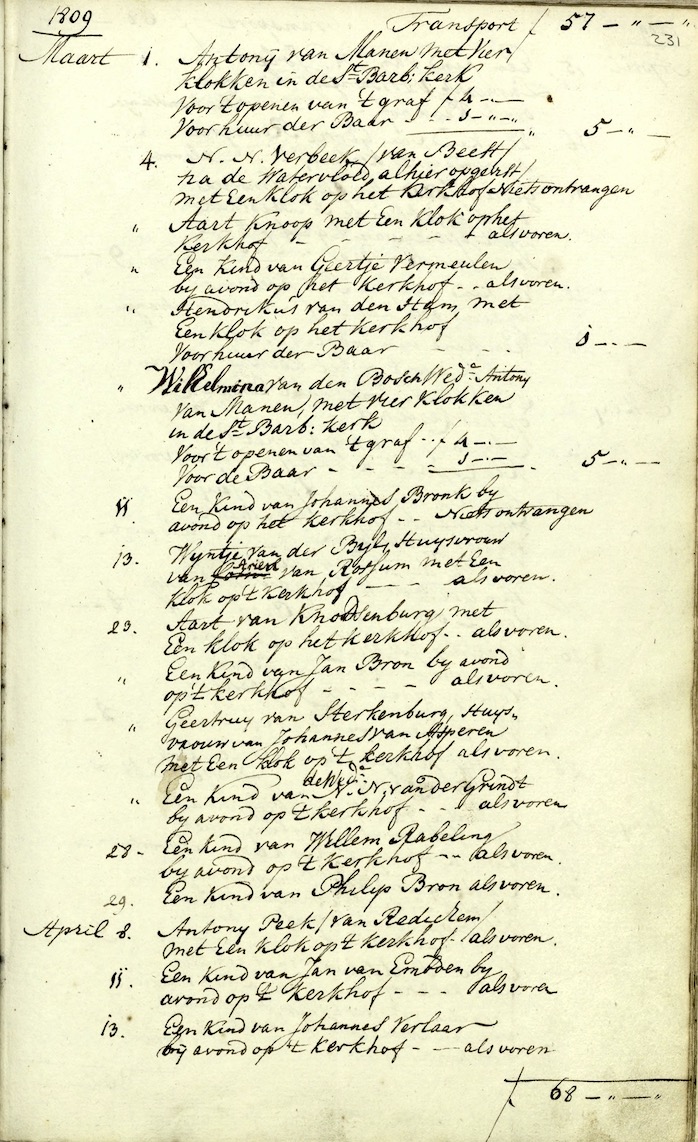 1809
Transport f 57 - " - "
231
Maart 1. Antonij van Manen met Vier
klokken in de St Barb: kerk
Voor 't openen van 't graf f 4 -.-
Voor huur der Baar - - 1 -"-"-
" 5 - " -
4. N. N. Verbeek /van Beest/
na de Watervloed alhier opgevist/
met Een klok op het kerkhof Niets ontvangen
" Aart Knoop met Een klok op het
kerkhof - - - - - alsvoren.
" Een Kind van Geertje Vermeulen
bij avond op het kerkhof - - alsvoren.
" Hendrikus van den Ham, met
Een klok op het kerkhof
Voor huur der Baar - - - 1 -.-
" Wilhelmina van den Bosch Wede Antony
van Manen, met vier klokken
in de St Barb: kerk
Voor 't openen van 't graf - - f 4 -.-
Voor de Baar - - - - 1 -.-
5 - " -
11 Een Kind van Johannes Bronk by
avond op het kerkhof - - Niets ontvangen
13. Wyntje van der Byl, Huysvrouw
Arien
van van Rossum met Een
klok op 't kerkhof - - - alsvoren.
23. Aart van Knodsenburg met
Een klok op het kerkhof - - alsvoren.
" Een Kind van Jan Bron by avond
op 't kerkhof - - - - alsvoren.
" Geertruy van Sterkenburg, Huys„
vrouw van Johannes van Asperen
met Een klok op 't kerkhof alsvoren.
de Wed:
" Een Kind van N. N. van der Grindt
by avond op 't kerkhof - - alsvoren
28 - Een Kind van Willem Rabeling
by avond op 't kerkhof - - alsvoren.
29. Een Kind van Philip Bron alsvoren.
April 8. Antony Peek /van Redichem/
met Een klok op 't kerkhof - alsvoren.
11. Een Kind van Jan van Embden by
avond op 't kerkhof - - - alsvoren
13. Een Kind van Johannes Verlaar
bij avond op 't kerkhof - - alsvoren
f 68 - " - "